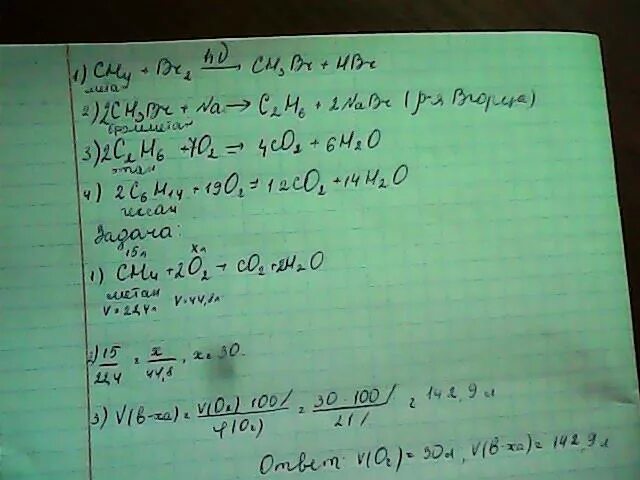 1) CH4 + Br2 hν → CH3Br + HBr
метан
2) 2CH3Br + Na → C2H6 + 2NaBr (р-я Вюрца)
бромметан
3) 2C2H6 + 7O2 = 4CO2 + 6H2O
этан
4) 2C6H14 + 19O2 = 12CO2 + 14H2O
гексан
Задача:
15л xл
1) CH4 + 2O2 → CO2 + 2H2O
метан
V=22,4л V=44,8л
2) 15/22,4 = x/44,8, x = 30.
3) V(в-ха) = V(O2)·100%/φ(O2) = 30·100%/21% = 142,9л
Ответ: V(O2) = 30л, V(в-ха) = 142,9л